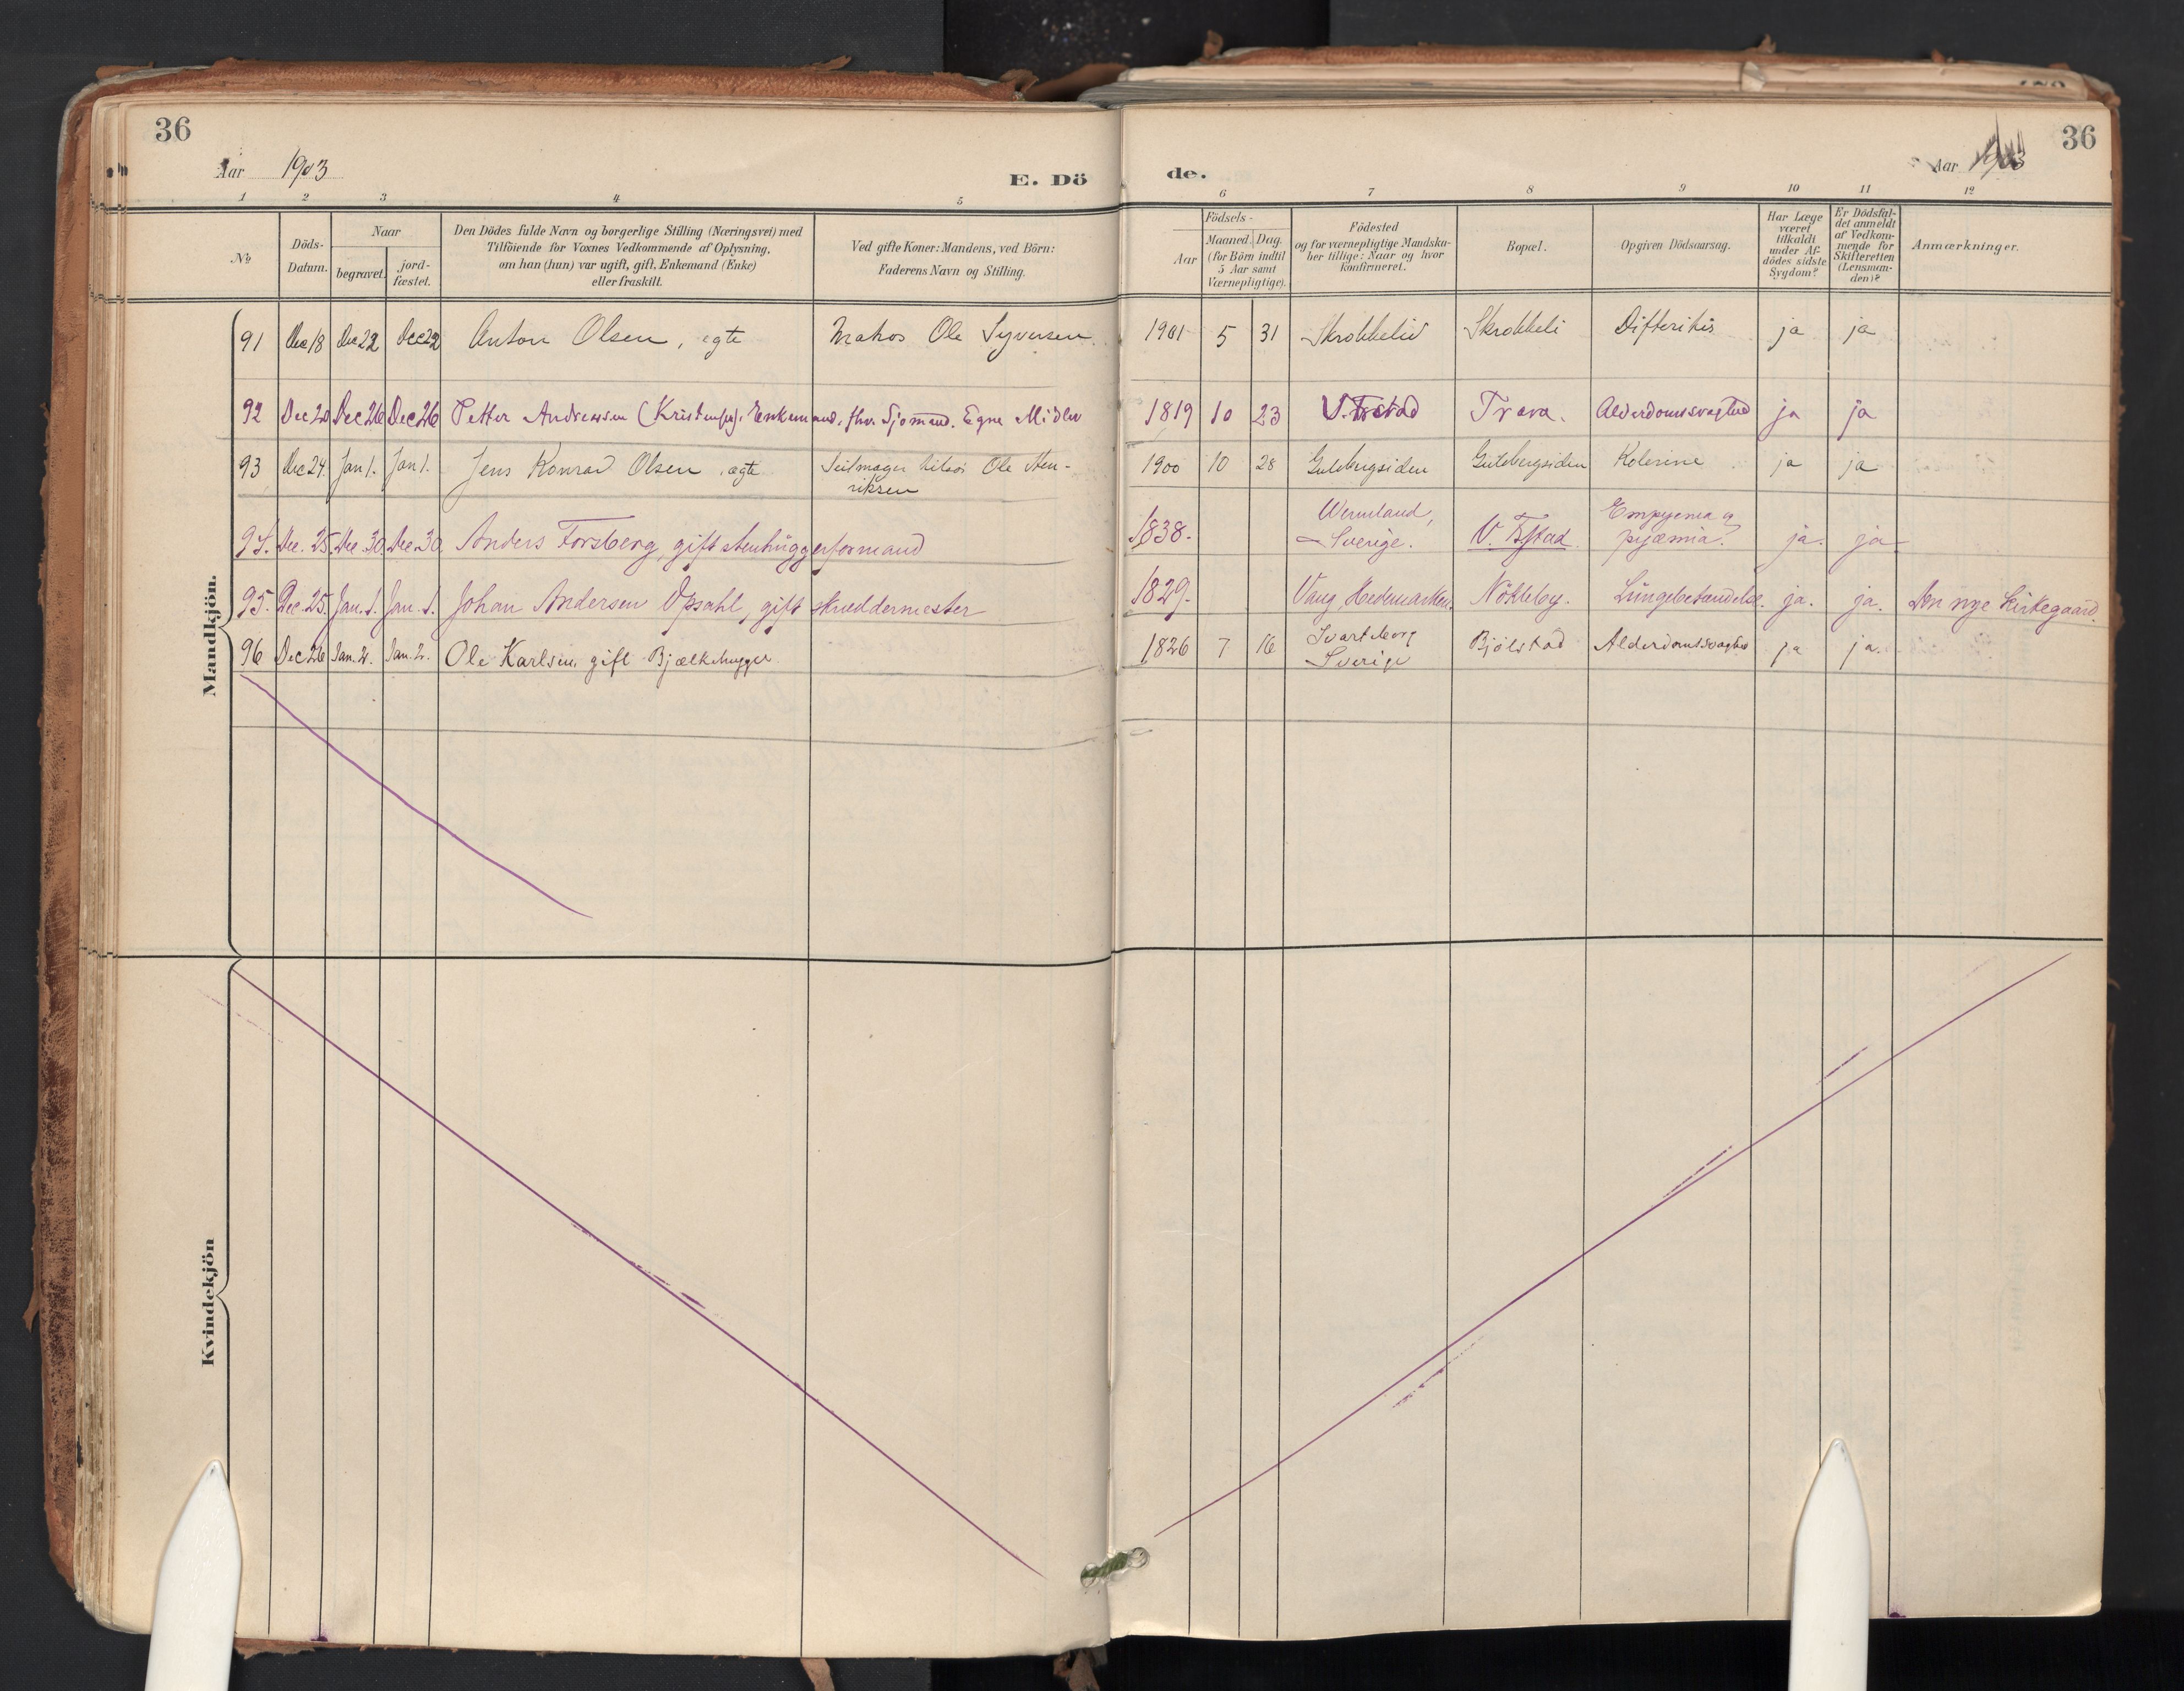 36
Aar 1903
E. Dö
1 2 3 4 5
№
Döds-Datum.
Naar
begravet.
jordfæstet.
Den Dödes fulde Navn og borgerlige Stilling (Næringsvei) med
Tilföiende for Voxnes Vedkommende af Oplysning,
om han (hun) var ugift, gift, Enkemand (Enke)
eller fraskilt.
Ved gifte Koner: Mandens, ved Börn:
Faderens Navn og Stilling.
Mandkjön.
91 Dec 18 Dec 22 Dec 22 Anton Olsen, ægte Matros Ole Syversen
92 Dec 20 Dec 26 Dec 26 Petter Andreassen Enkemand, fhv. Sjømand. Egne Midler
93 Dec 24. Jan 1. Jan 1. Jens Konrad Olsen, ægte Seilmager Ole Hen-
riksen
94. Dec. 25. Dec 30. Dec. 30. Anders Forsberg, gift stenhuggerformand
95. Dec. 25. Jan. 1. Jan. 1. Johan Andersen Opsahl, gift skræddermester
96 Dec 26 Jan. 2. Jan. 2. Ole Karlsen, gift Bjælkehugger
Kvindekjön
36
de.
Aar 1903
6 7 8 9 10 11 12
Födsels-
Aar
Maaned. Dag.
(for Börn indtil
5 Aar samt
Værnepligtige).
Födested
og for værnepligtige Mandska-
ber tillige: Naar og hvor
konfirmeret.
Bopæl.
Opgiven Dödsaarsag.
Har Læge
været
tilkaldt
under Af-
dödes sidste
Sygdom?
Er Dödsfal-
det anmeldt
af Vedkom-
mende for
Skifteretten
(Lensman-
den)?
Anmærkninger.
1901 5 31 Skrobbeli Difteritis ja ja
1819 10 23 V. Frstad Trara. Alderdomssvaghed ja ja
1900 10 28 Guldbergsiden Guldbergsiden Kolerine ja ja
1838. Wermland,
Sverige. V. Frstad. Empyema og
pyæmia. ja. ja
1829. Vang, Hedemarken. Nökleby. Lungebetændelse. ja. ja. Den nye Kirkegaard.
1826 7 16 Svarteborg
Sverige Bjölstad Alderdomssvaghed ja ja.